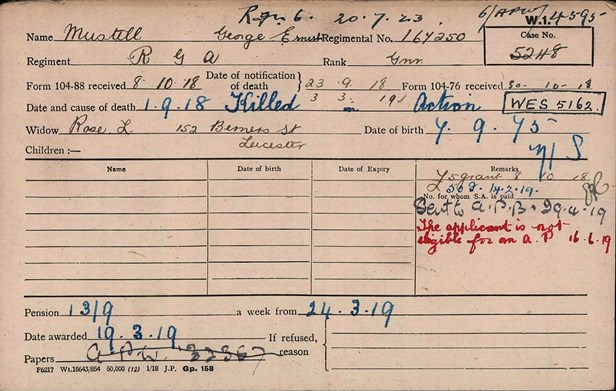 Reg. 6. 20.7.23 6/APW/ W.1. 4595
Name Mustell George Ernest Regimental No. 164250 Case No. 5248
Regiment R G A Rank Gnr
Form 104-88 received 8.10.18 Date of notification of death 23.9.18 Form 104-76 received 30-10-18
Date and cause of death 1.9.18 Killed in Action WES 5162.
Widow Rose L. 152 Berners St Leicester Date of birth 7.9.75
Children :— N/S
Name Date of birth Date of Expiry Remarks
£5 grant 8 10 18
No. for whom S.A. is paid
14.2.19.
Sent to A.P.B. 29.4.19
The applicant is not
eligible for an A.P 16.6.19
Pension 13/9 a week from 24.3.19
Date awarded 19.3.19 If refused, reason
Papers A.P.W. 22367
F6217 Wt.15643/854 50,000 (12) 1/18 J.P. Gp. 158